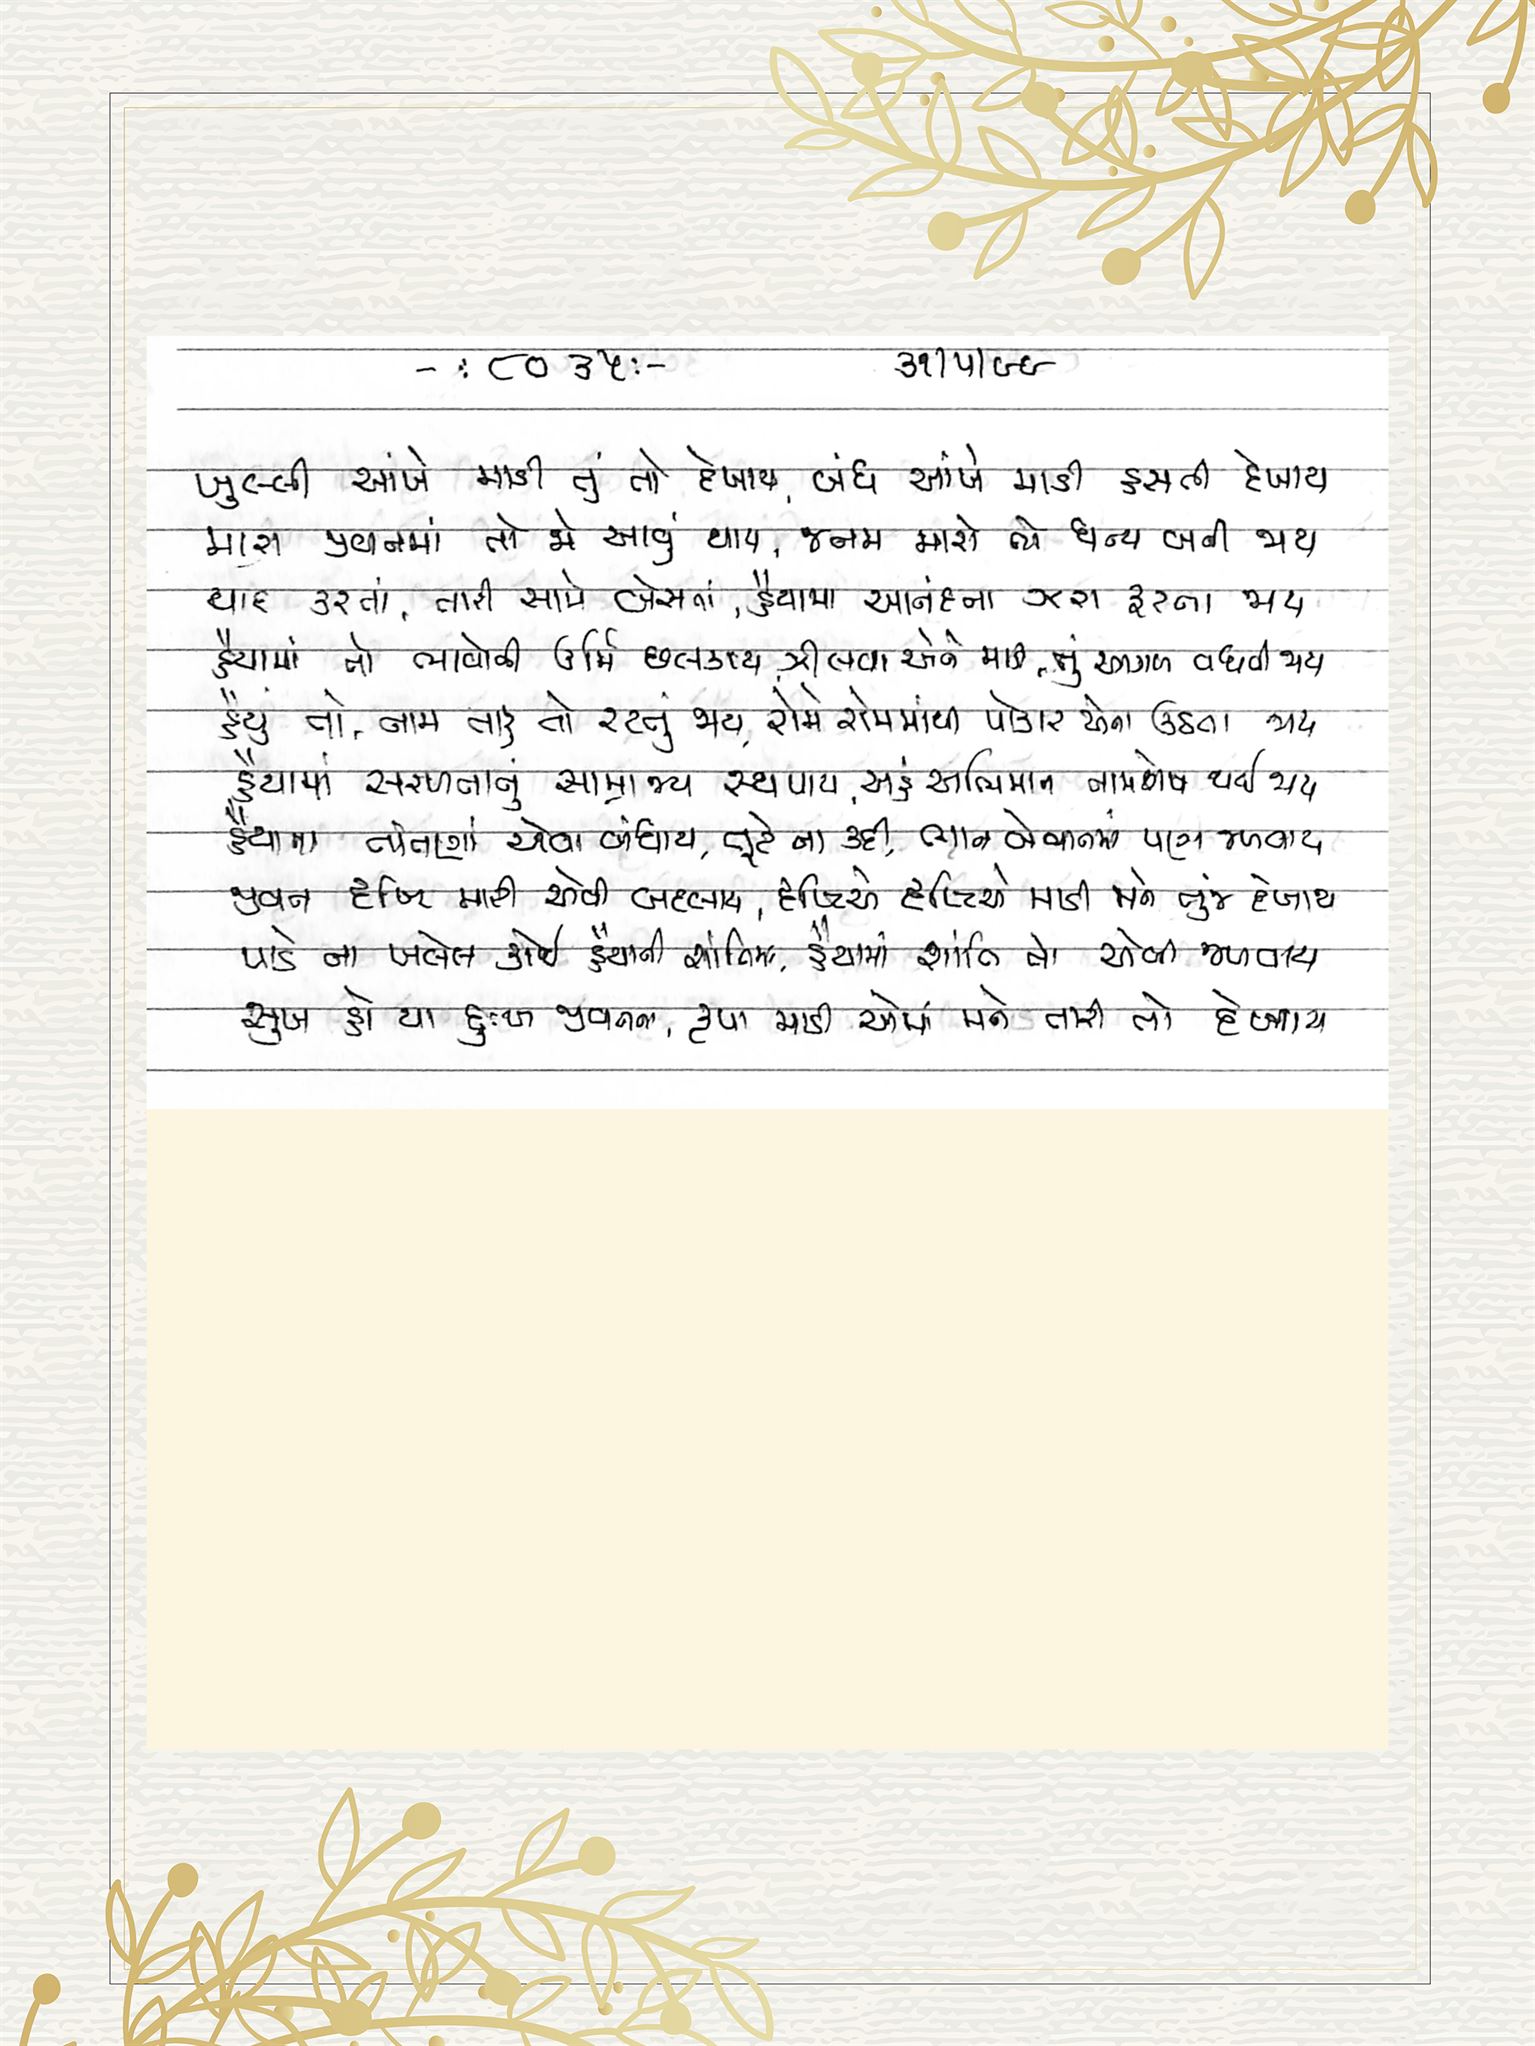 -: ૮૦૩૫ :- ૩૧/૫/૯૯
ખુલ્લી આંખે માડી તું તો દેખાય, બંધ આંખે માડી હસતી દેખાય
મારા જીવનમાં તો જો આવું થાય, જનમ મારો ત્યે ધન્ય બની જાય
યાદ કરતાં, તારી સામે બેસતાં, હૈયામાં આનંદના ઝરા ફૂટતા જાય
હૈયામાં તો ભાવોની ઉર્મિ છલકાય, ઝીલવા એને માડી, તું આગળ વધતી જાય
હૈયું તો, નામ તારું તો રટતું જાય, રોમે રોમમાંથી પોકાર એના ઉઠતા જાય
હૈયામાં સરળતાનું સામ્રાજ્ય સ્થપાય, અહં અભિમાન નામશેષ થઈ જાય
હૈયાના તાંતણાં એવા બંધાય, તૂટે ના કદી, ભાન બેભાનમાં પણ જળવાય
જીવન દૃષ્ટિ મારી એવી બદલાય, દૃષ્ટિએ દૃષ્ટિએ માડી મને તુંજ દેખાય
પાડે ના ખલેલ કોઈ હૈયાની શાંતિમાં, હૈયામાં શાંતિ તો એવી જળવાય
સુખ હો યા દુઃખ જીવનના, કૃપા માડી એમાં મને તારી તો દેખાય